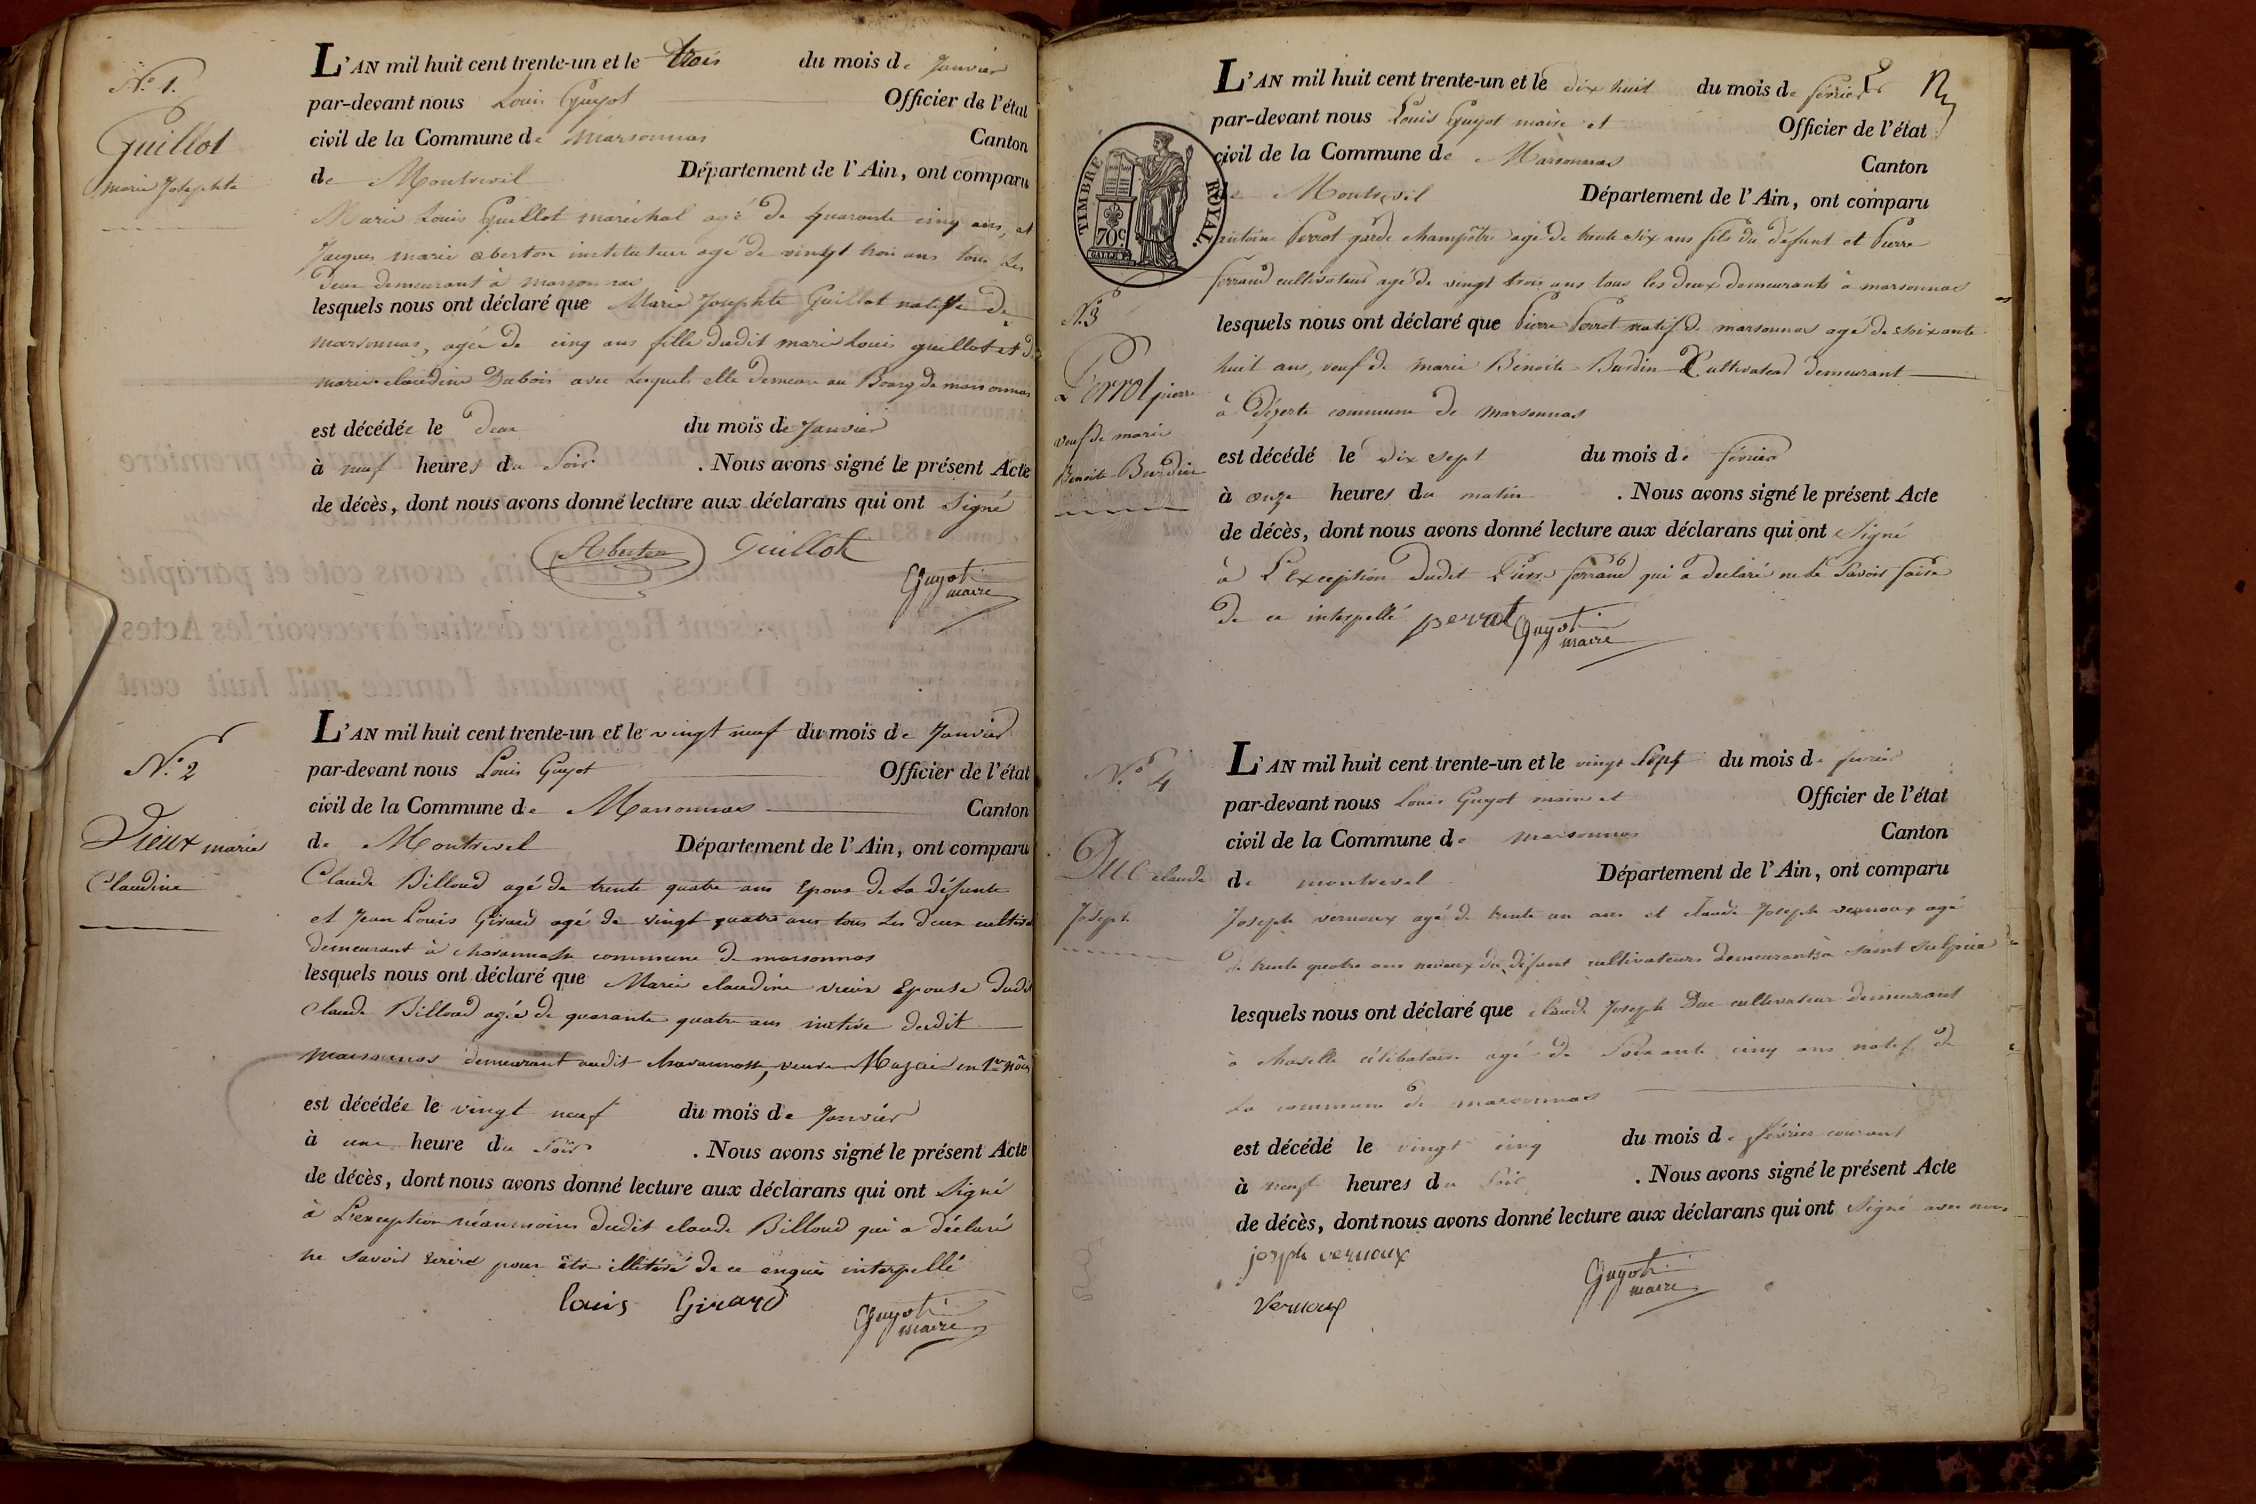 N.º 1.
Guillot
marie Josephte
L'AN mil huit cent trente-un et le trois du mois de Janvier
par-devant nous Louis Guyot Officier de l'état
civil de la Commune de marsonnas Canton
de Montrevel Département de l'Ain, ont comparu
Marie Louis Guillot maréchal agé de quarante cinq ans, et
Jacques marie aberton instituteur agé de vingt trois ans tous les
deux demeurant à marsonnas
lesquels nous ont déclaré que Marie Josephte Guillot native de
marsonnas, agée de cinq ans fille dudit marie Louis guillot et de
marie claudine Dubois avec lesquels elle demeure au Bourg de marsonnas
est décédée le deux du mois de Janvier
à neuf heures du Soir. Nous avons signé le présent Acte
de décès, dont nous avons donné lecture aux déclarans qui ont Signé
Aberton Guillot
Guyot
maire
N.º 2
Vieux marie
Claudine
L'AN mil huit cent trente-un et le vingt neuf du mois de Janvier
par-devant nous Louis Guyot Officier de l'état
civil de la Commune de Marsonnas Canton
de Montrevel Département de l'Ain, ont comparu
Claude Billoud agé de trente quatre ans Epoux de la défunte
et Jean Louis Girard agé de vingt quatre ans tous les deux cultiva
demeurant à commune de marsonnas
lesquels nous ont déclaré que Marie claudine vieux Epouse dudit
Claude Billoud agée de quarante quatre ans native dudit
marsonnas demeurant audit veuve en 1res nôces
est décédée le vingt neuf du mois de Janvier
à une heure du Soir. Nous avons signé le présent Acte
de décès, dont nous avons donné lecture aux déclarans qui ont Signé
à L'exception néanmoins dudit claude Billoud qui a déclaré
ne savoir écrire pour être illitéré de ce enquis interpellé
louis Girard
Guyot
maire
TIMBRE ROYAL.
70c
N.º 3
Perrot pierre
veuf de marie
Benoite Burdin
L'AN mil huit cent trente-un et le dix huit du mois de février
par-devant nous Louis Guyot maire et Officier de l'état
civil de la Commune de Marsonnas Canton
de Montrevel Département de l'Ain, ont comparu
antoine Perrot garde champêtre agé de trente six ans fils du défunt et Pierre
ferrand cultivateur agé de vingt trois ans tous les deux demeurants à marsonnas
lesquels nous ont déclaré que Pierre Perrot natif de marsonnas agé de soixante
huit ans, veuf de marie Benoite Burdin Cultivateur demeurant
à Dézerte commune de marsonnas
est décédé le dix sept du mois de février
à onze heures du matin. Nous avons signé le présent Acte
de décès, dont nous avons donné lecture aux déclarans qui ont Signé
à L'exception dudit Pierre ferrand qui a déclaré ne le savoir faire
de ce interpellé perrot Guyot
maire
N.º 4
Duc claude
Joseph
L'AN mil huit cent trente-un et le vingt Sept du mois de
par-devant nous Louis Guyot maire et Officier de l'état
civil de la Commune de marsonnas Canton
de montrevel Département de l'Ain, ont comparu
Joseph vernoux agé de trente un ans et claude Joseph vernoux agé
de trente quatre ans neveux du défunt cultivateurs demeurants à saint Sulpice
lesquels nous ont déclaré que claude Joseph Duc cultivateur demeurant
à célibataire agé de soixante cinq ans natif de
la commune de marsonnas
est décédé le vingt cinq du mois de février courant
à neuf heures du Soir. Nous avons signé le présent Acte
de décès, dont nous avons donné lecture aux déclarans qui ont Signé avec nous
joseph vernoux
Guyot
maire
Vernoux